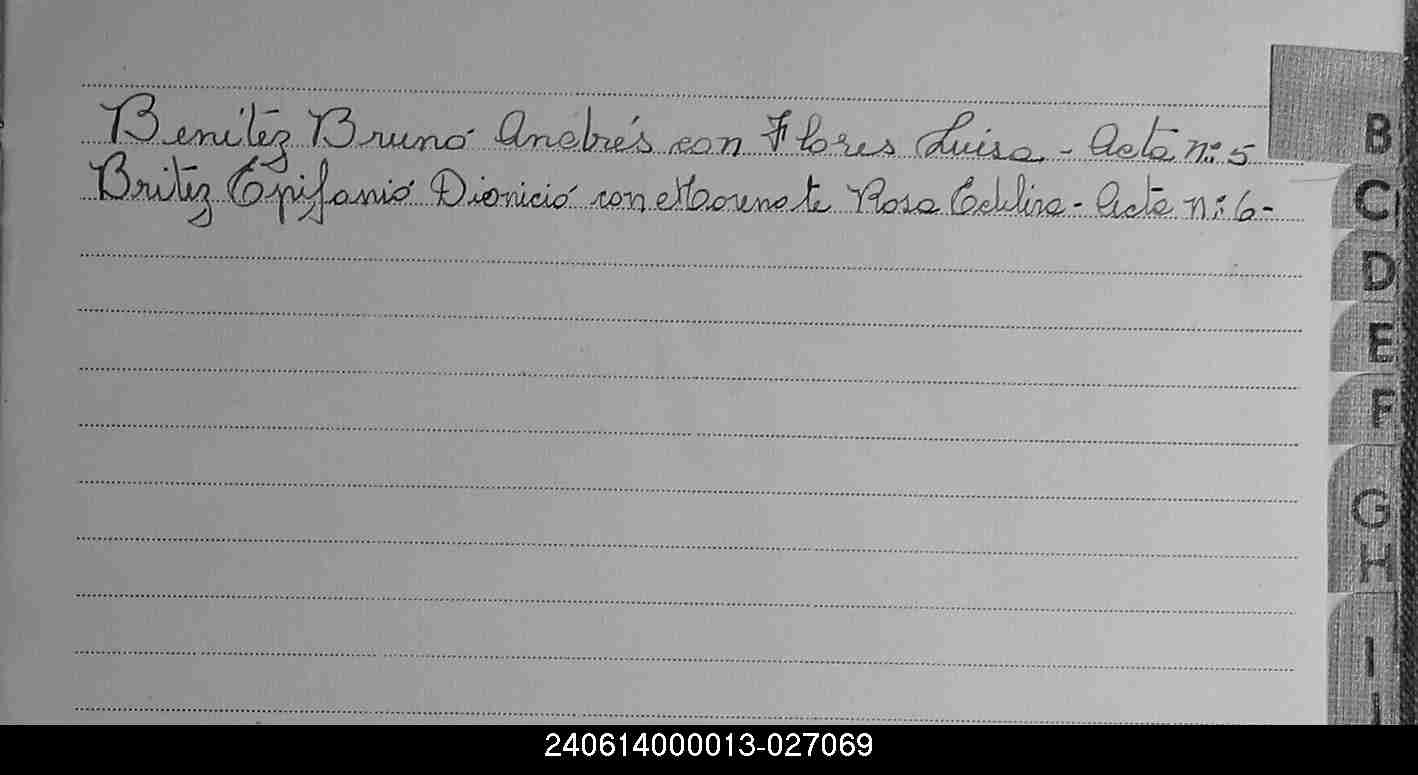 Benítez Bruno Andrés con Flores Luisa - Acta n: 5
Britez Epifanio Dionicio con Rosa - Acta n: 6-
B
C
D
E
F
G
H
I
240614000013-027069